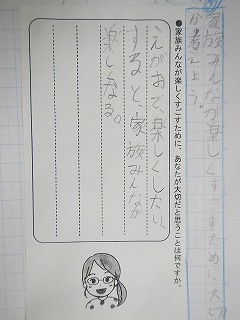 家族みんなが楽しくすごすために大切
か考えよう。
●家族みんなが楽しくすごすために、あなたが大切だと思うことは何ですか。
えがおで、楽しくしたい、
すると、家族みんなが
楽しくなる。